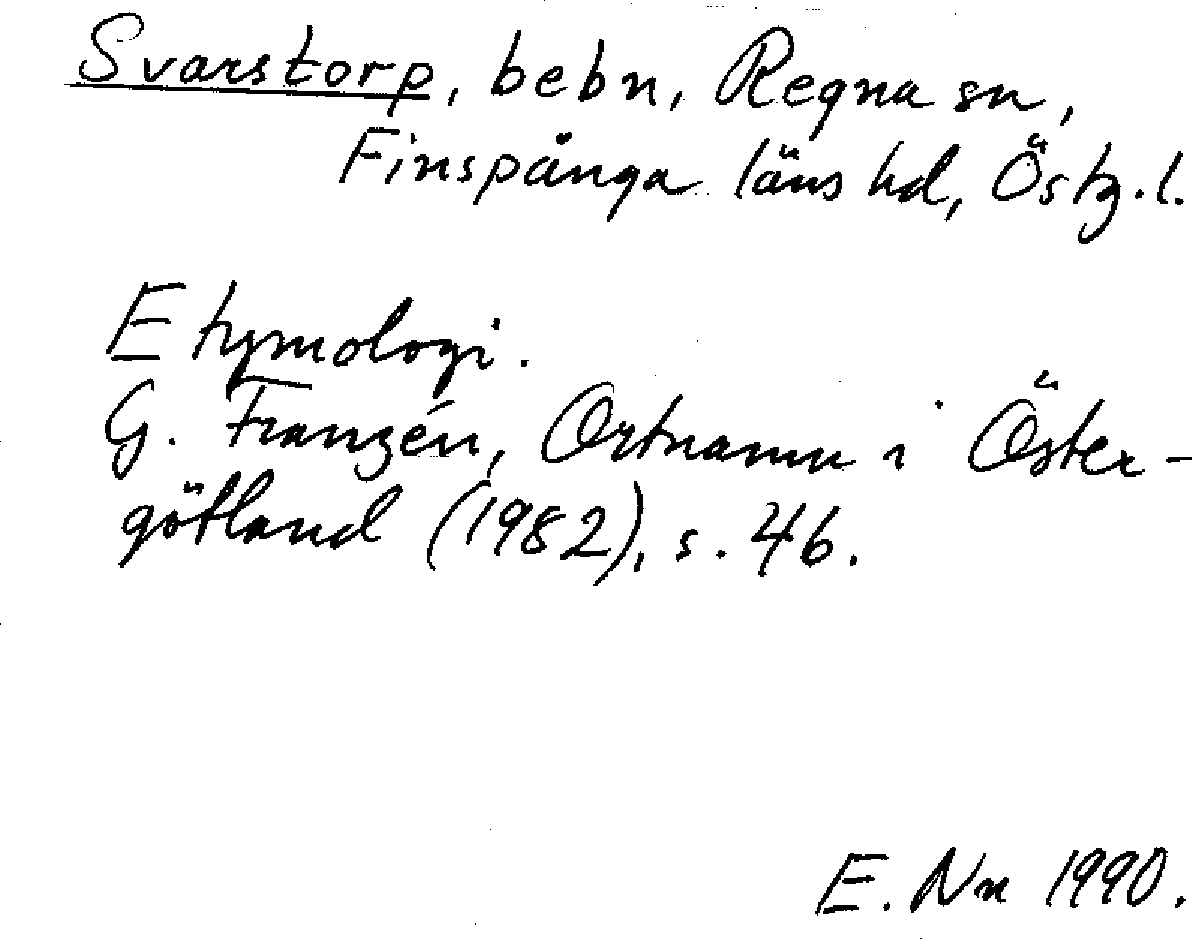 Svarstorp, bebn, Regna sn,
Finspånga läns hd, Östg.l.
Etymologi.
G. Franzén, Ortnamn i Öster-
götland (1982), s. 46.
E. Nn 1990.